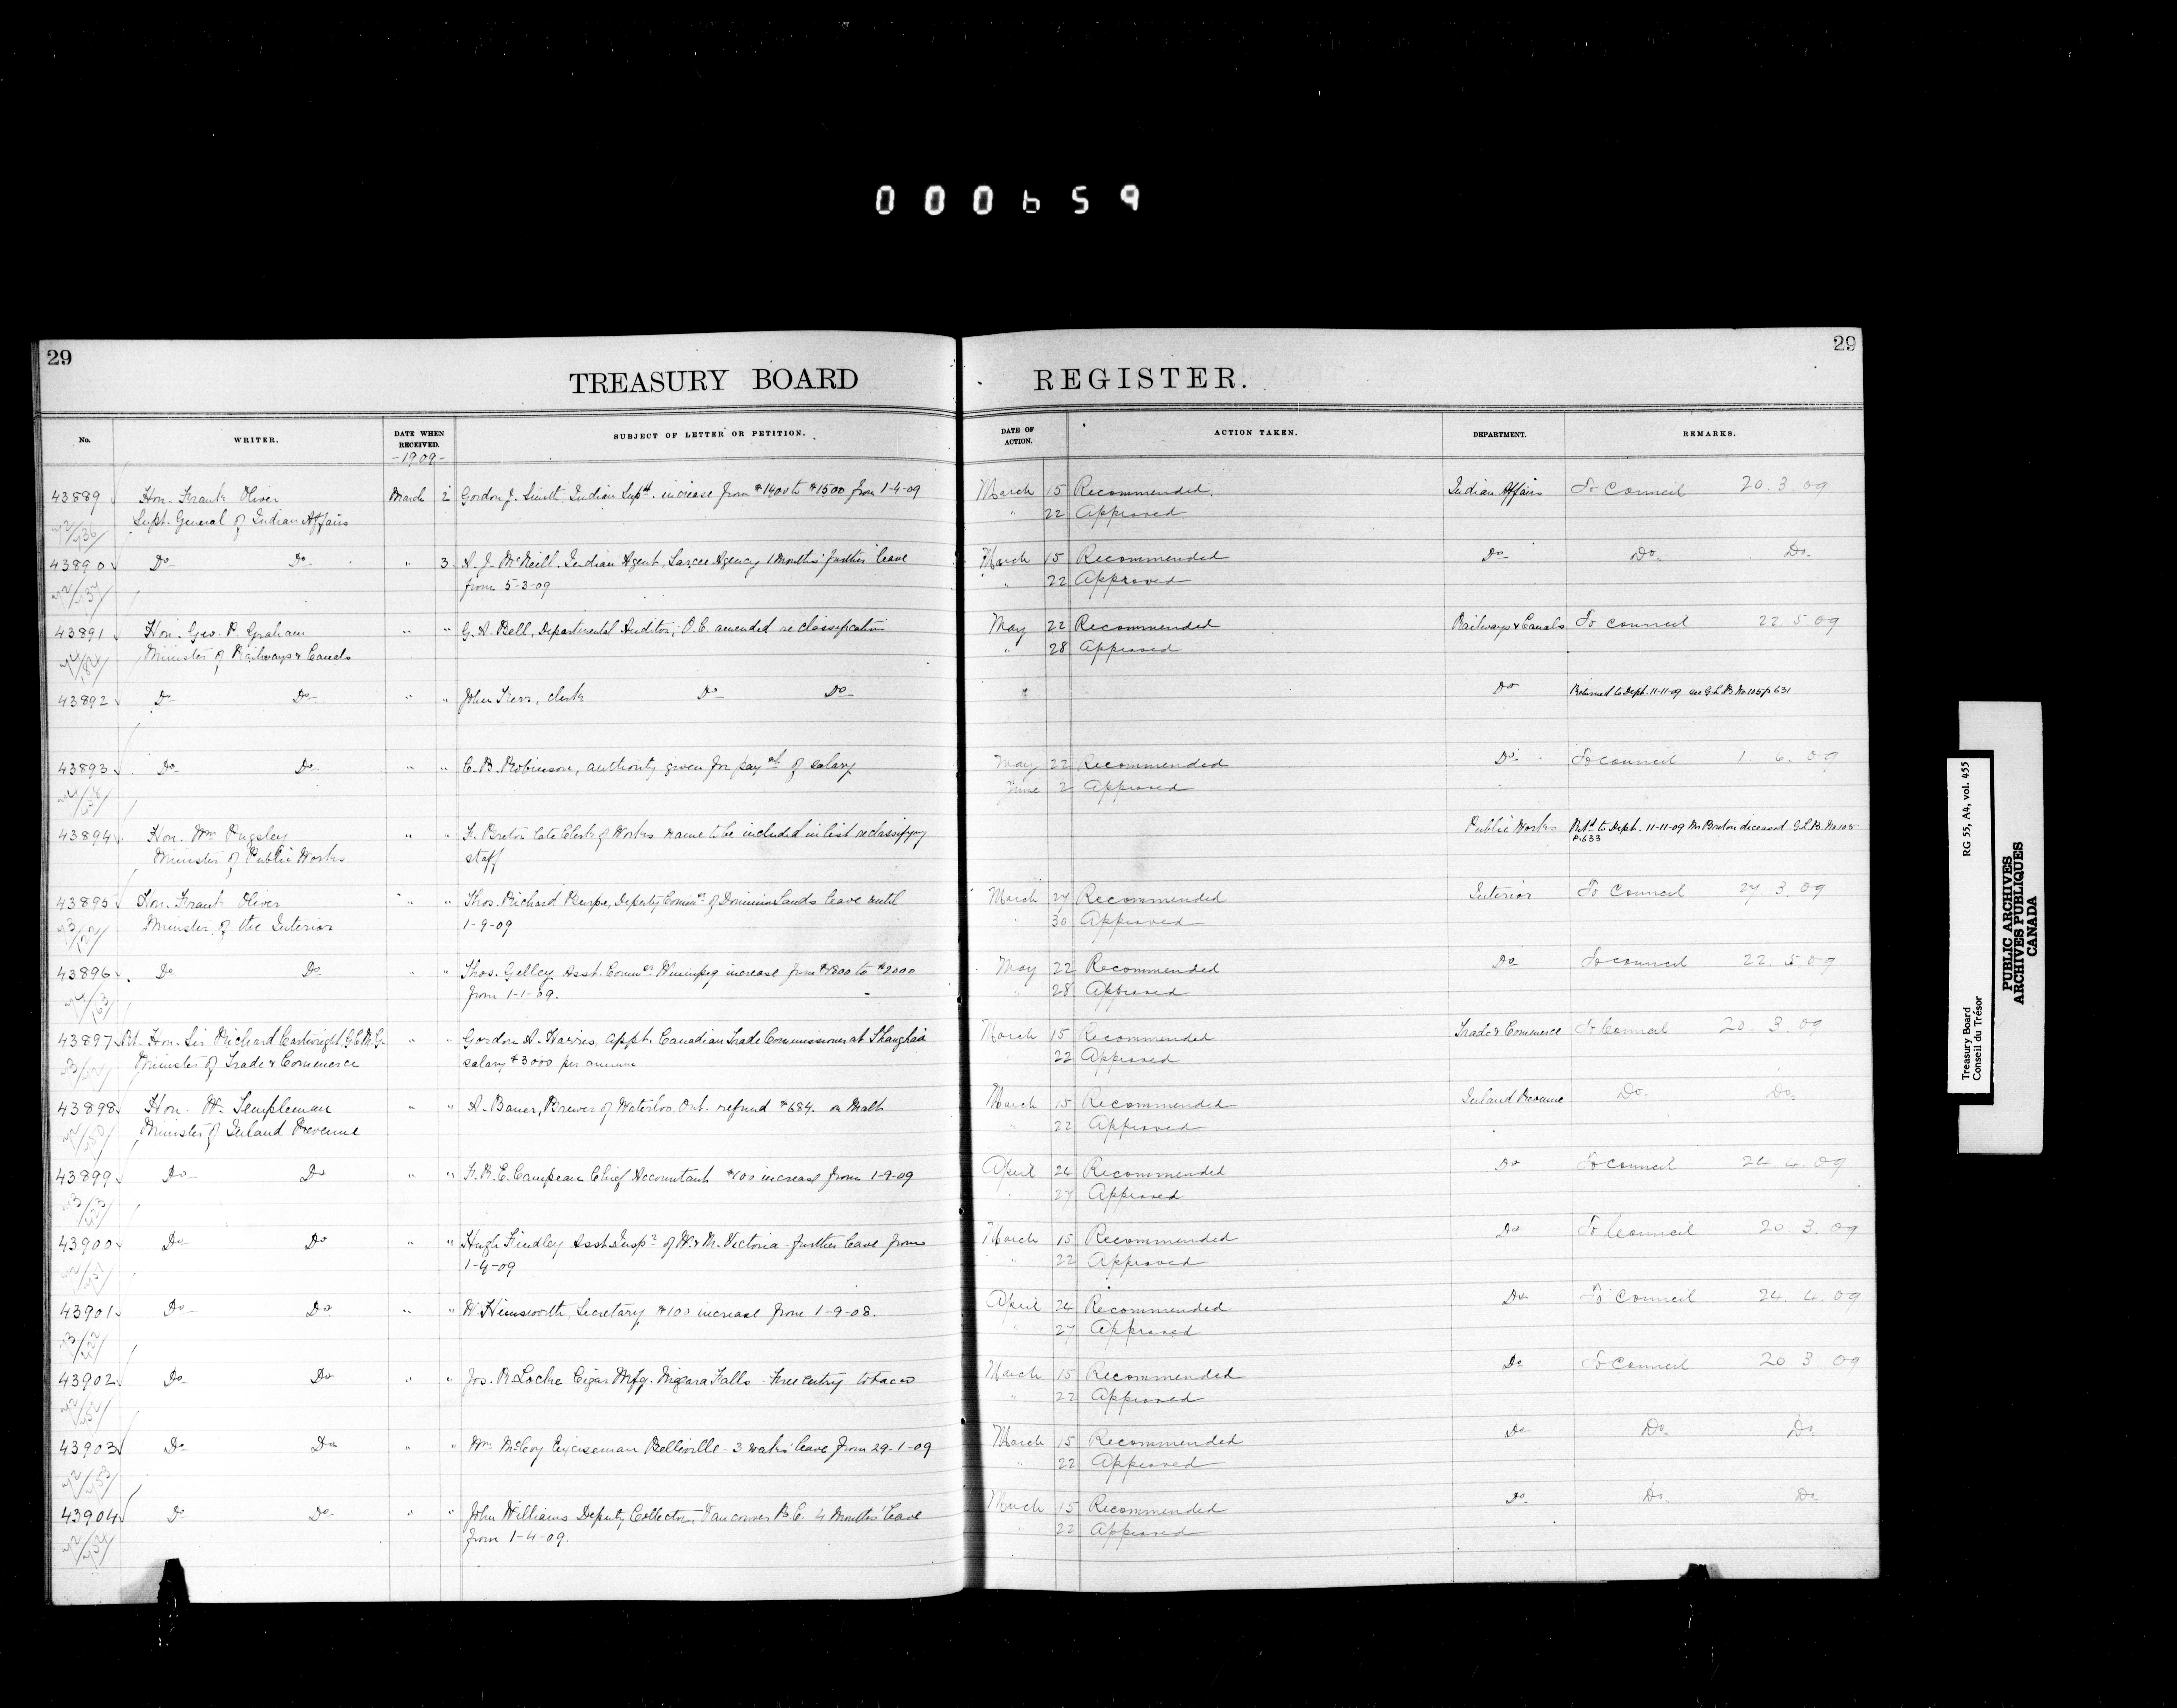 000659
29
29
TREASURY BOARD REGISTER.
No. WRITER. DATE WHEN RECEIVED. SUBJECT OF LETTER OR PETITION. DATE OF ACTION. ACTION TAKEN. DEPARTMENT. REMARKS.
-1909-
43889 Hon. Frank Oliver March 2 Gordon J. Smith, Indian Supt. increase from $1400 to $1500 from 1-4-09 March 15 Recommended. Indian Affairs To Council 20.3.09
Supt. General of Indian Affairs " 22 Approved
43890 Do Do " 3 A. J. McNeill Indian Agent, Sarcee Agency 1 Months' further leave March 15 Recommended Do Do. Do
from 5-3-09 " 22 Approved
43891 Hon. Geo. P. Graham " " G. A. Bell, Departmental Auditor, O.C. amended re classification May 22 Recommended Railways & Canals To council 22.5.09
Minister of Railways & Canals " 28 Approved
43892 Do Do " " John Kerr, clerk Do Do Do Returned to Dept. 11-11-09 see G.L.B. No 105 p 631
43893 Do Do " " C. B. Robinson, authority given for paymt of salary May 22 Recommended Do To council 1.6.09
June 2 Approved
43894 Hon. Wm Pugsley " " Fr. Breton late Clerk of Works name to be included in list reclassifying Public Works Retd to Dept. 11-11-09 Mr Breton deceased G.L.B. No 105
Minister of Public Works staff P. 633
43895 Hon. Frank Oliver " " Thos. Richard Burpe, Deputy Commr of Dominion Lands leave until March 27 Recommended Interior To Council 27.3.09
Minister of the Interior 1-9-09 " 30 Approved
43896 Do Do " " Thos. Gelley Asst. Commr Winnipeg increase from $1800 to $2000 May 22 Recommended Do To council 22.5.09
from 1-1-09. " 28 Approved
43897 Rt. Hon. Sir Richard Cartwright G.C.M.G. " " Gordon A. Harris, appt. Canadian Trade Commissioner at Shanghai March 15 Recommended Trade & Commerce To Council 20.3.09
Minister of Trade & Commerce salary $3000 per annum 22 Approved
43898 Hon. W. Templeman " " A. Bauer, Brewer of Waterloo, Ont. refund $684. on Malt March 15 Recommended Inland Revenue Do. Do.
Minister of Inland Revenue " 22 Approved
43899 Do Do " " F. R. E. Campeau Chief Accountant $100 increase from 1-9-09 April 24 Recommended Do To council 24.4.09
" 27 Approved
43900 Do Do " " Hugh Findley Asst. Inspr of W. & M. Victoria - further leave from March 15 Recommended Do To Council 20.3.09
1-4-09 " 22 Approved
43901 Do Do " " W. Himsworth, Secretary $100 increase from 1-9-08. April 24 Recommended Do To Council 24.4.09
" 27 Approved
43902 Do Do " " Jos. R. Locke Cigar Mfg. Niagara Falls - Free entry tobacco March 15 Recommended Do To Council 20.3.09
" 22 Approved
43903 Do Do " " Wm. McCoy Exciseman Belleville - 3 weeks' leave from 29-1-09 March 15 Recommended Do Do. Do.
" 22 Approved
43904 Do Do " " John Williams Deputy Collector, Vancouver B.C. 4 Months' leave March 15 Recommended Do Do. Do.
from 1-4-09. " 22 Approved
Treasury Board RG 55, A4, vol. 455
Conseil du Trésor
PUBLIC ARCHIVES
ARCHIVES PUBLIQUES
CANADA